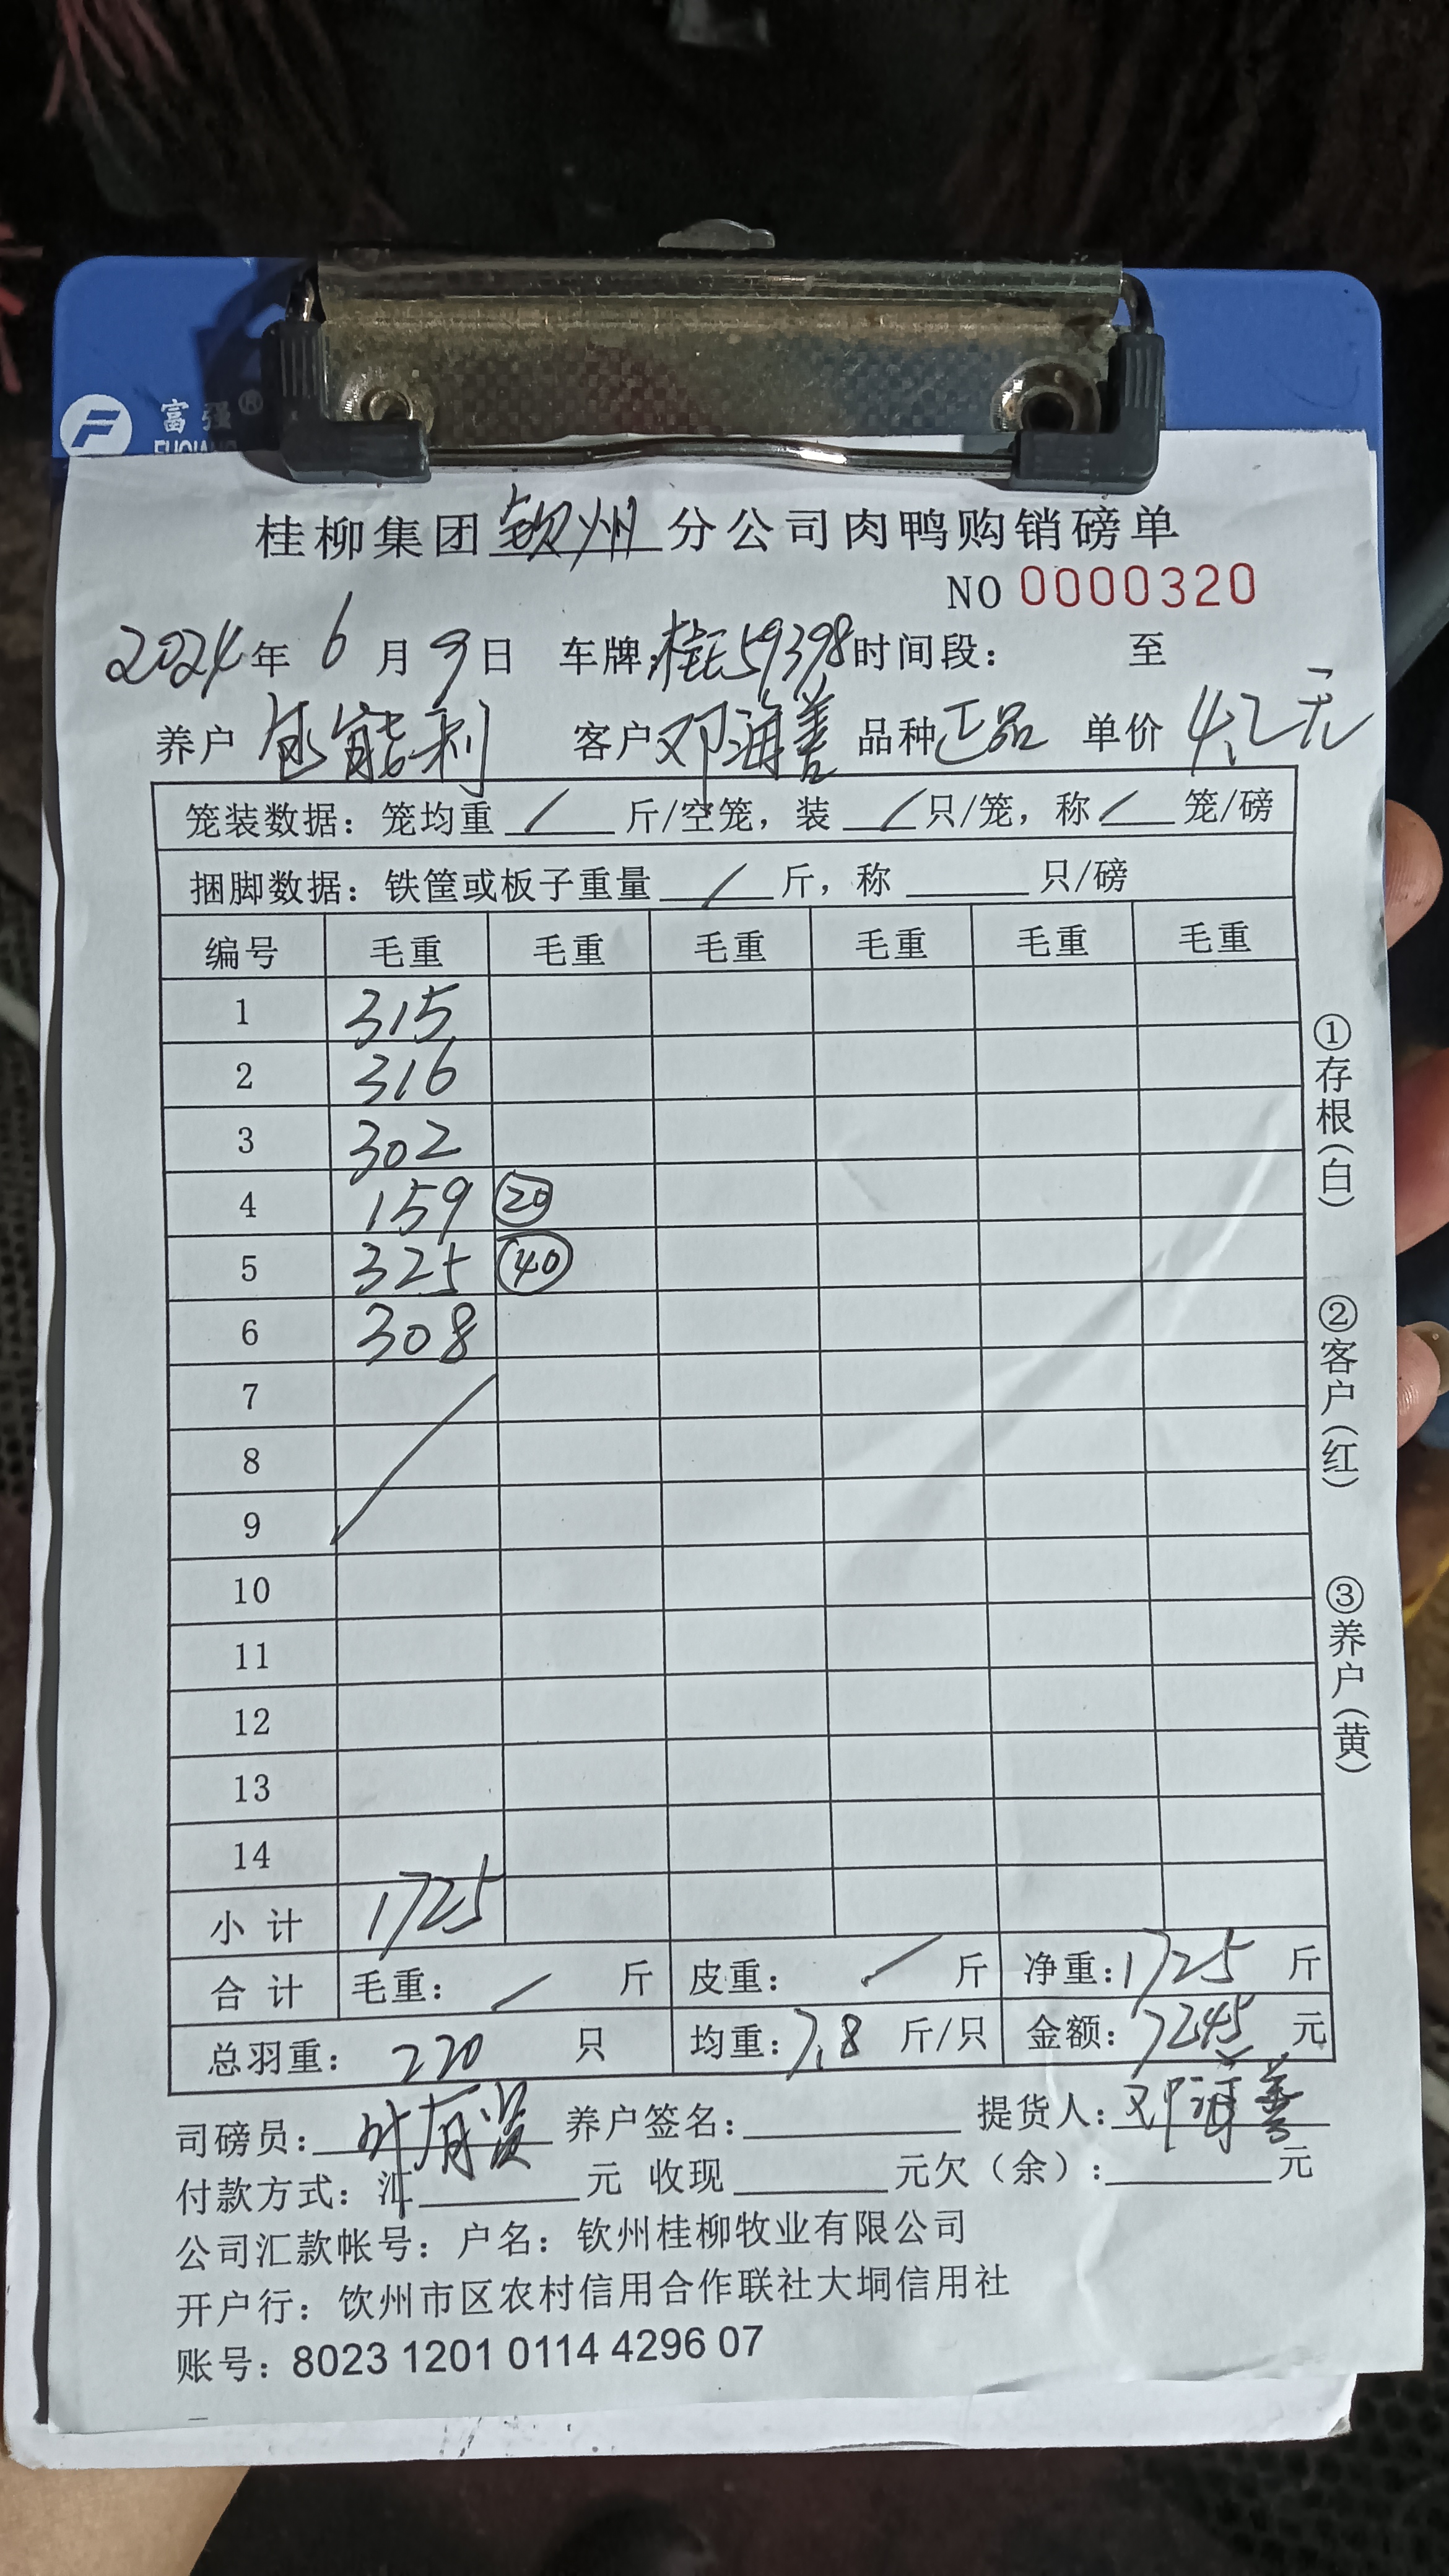 富强®
桂柳集团钦州分公司肉鸭购销磅单
NO 0000320
2024年6月9日 车牌:桂E59398时间段: 至
养户 能利 客户邓海善 品种正品 单价4.2元
笼装数据:笼均重 / 斤/空笼,装 / 只/笼,称 / 笼/磅
捆脚数据:铁筐或板子重量 / 斤,称 只/磅
编号 毛重 毛重 毛重 毛重 毛重 毛重
1 315
2 316
3 302
4 159 ⑳
5 325 ㊵
6 308
7
8
9
10
11
12
13
14
小计 1725
合计 毛重: / 斤 皮重: / 斤 净重:1725 斤
总羽重: 220 只 均重:7.8 斤/只 金额:7245 元
司磅员:叶 养户签名: 提货人:邓海善
付款方式:汇 元 收现 元欠(余): 元
公司汇款帐号:户名:钦州桂柳牧业有限公司
开户行:钦州市区农村信用合作联社大垌信用社
账号:8023 1201 0114 4296 07
①存根(白)
②客户(红)
③养户(黄)